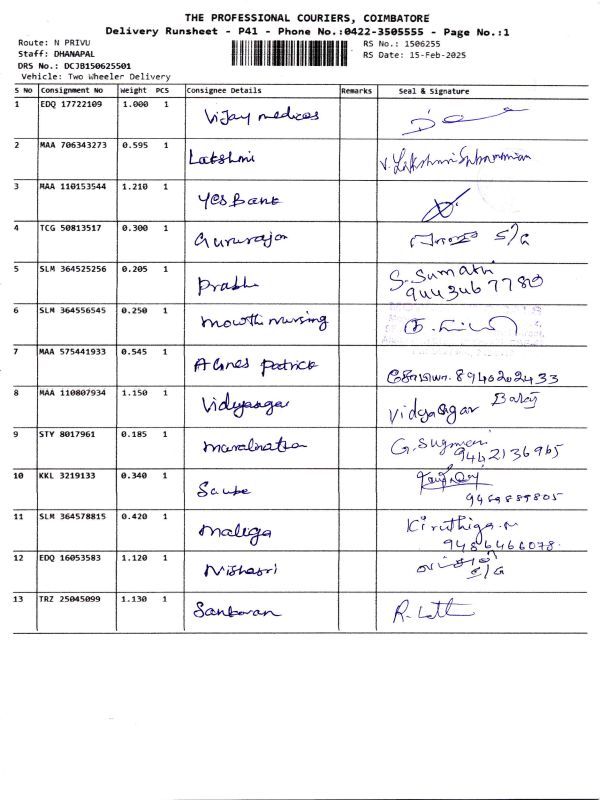 THE PROFESSIONAL COURIERS, COIMBATORE
Delivery Runsheet - P41 - Phone No.:0422-3505555 - Page No.:1
Route: N PRIVU
RS No.: 1506255
Staff: DHANAPAL
RS Date: 15-Feb-2025
DRS No.: DCJB150625501
Vehicle: Two Wheeler Delivery
S No Consignment No Weight PCS Consignee Details Remarks Seal & Signature
1 EDQ 17722109 1.000 1 Vijay medicos
2 MAA 706343273 0.595 1 Lakshmi V. Lakshmi Subramanian
3 MAA 110153544 1.210 1 Yes Bank
4 TCG 50813517 0.300 1 Gururajan
5 SLM 364525256 0.205 1 Prabhu S. Sumathi
9443467780
6 SLM 364556545 0.250 1 mowthi nursing
7 MAA 575441933 0.545 1 Agnes Patrick 8940202433
8 MAA 110807934 1.150 1 Vidyasagar Vidyasagar Balaji
9 STY 8017961 0.185 1 G. Sugmani
9442136965
10 KKL 3219133 0.340 1 9489889805
11 SLM 364578815 0.420 1 Malliga Kiruthiga.M
9486466078.
12 EDQ 16053583 1.120 1 Nishasri
13 TRZ 25045099 1.130 1 Sankaran